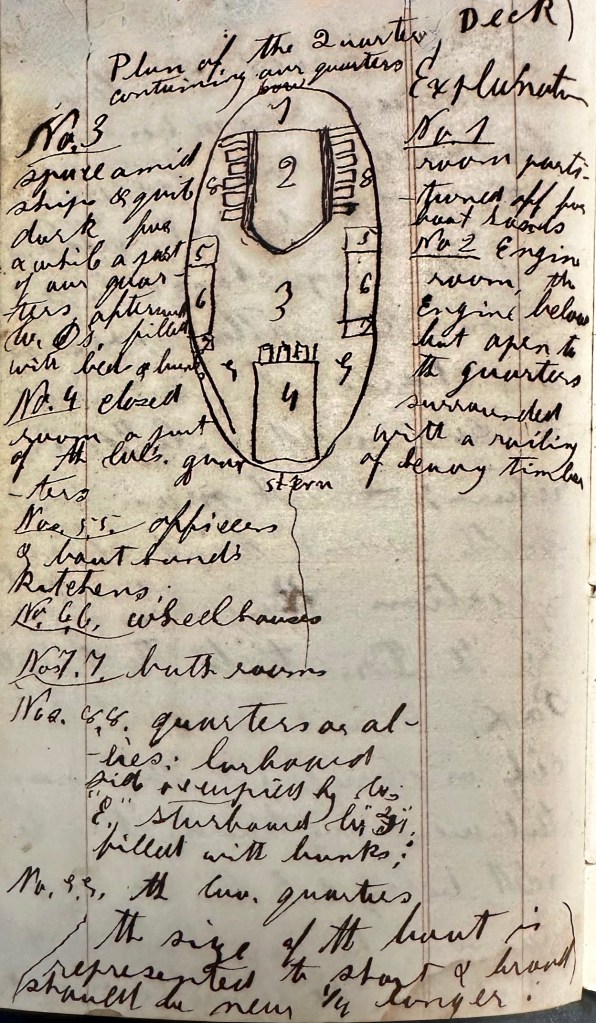 Plan of the Quarter Deck)
containing our quarters
bow
1
2
8
8
5
5
6
6
3
7
7
9
9
4
stern
Explanation
No. 1
room parti-
-tioned off for
boat hands
No 2 Engine
room, the
Engine below
but open to
the quarters
surrounded
with a railing
of heavy timber
No. 3
space amid
ships & quit
dark for
a while a part
of our quar-
ters, afterward
filled
with bed & bunks
No. 4 closed
room a part
of th Col's. quar
-ters
Nos. 5.5. officers
& boat hand's
kitchens;
No. 6.6. wheel houses
Nos 7.7. bath rooms
Nos. 8.8. quarters or al-
-lies: larboard
side occupied by Co;
"E," starboard by
filled with bunks;
No. 9.9. th Cav. quarters
th size of th boat is
represented to short & broad
should be near 1/4 longer.)